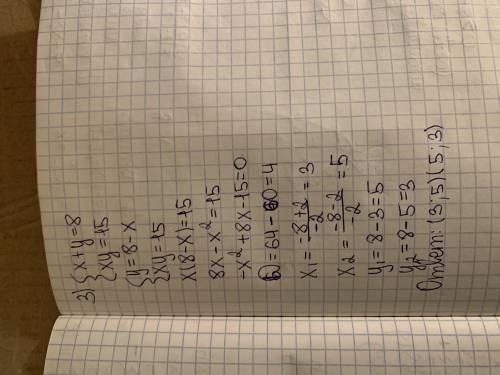 3) { x+y=8
{ xy=15
{ y=8-x
{ xy=15
x(8-x)=15
8x-x²=15
-x²+8x-15=0
D=64-60=4
x₁=\frac{-8+2}{-2}=3
x₂=\frac{-8-2}{-2}=5
y₁=8-3=5
y₂=8-5=3
Ответ: (3;5)(5;3)